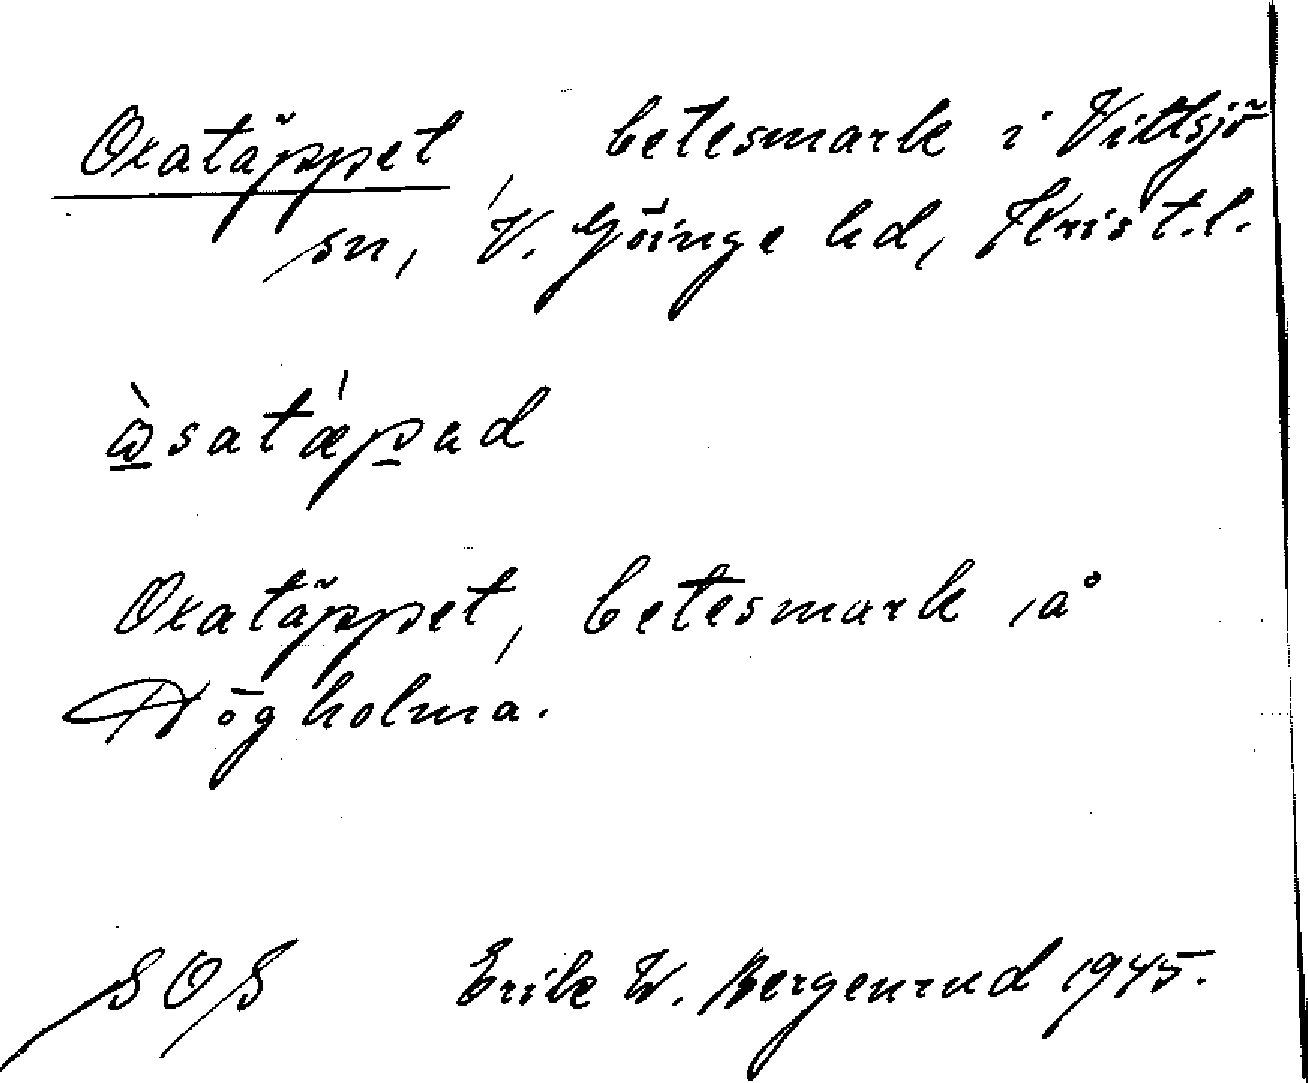 Oxatäppet, betesmark i Vittsjö
sn, V. Göinge hd, Krist.l.
Oxatäppet, betesmark å
Högholma.
SOS Erik W. Bergenrud 1945.